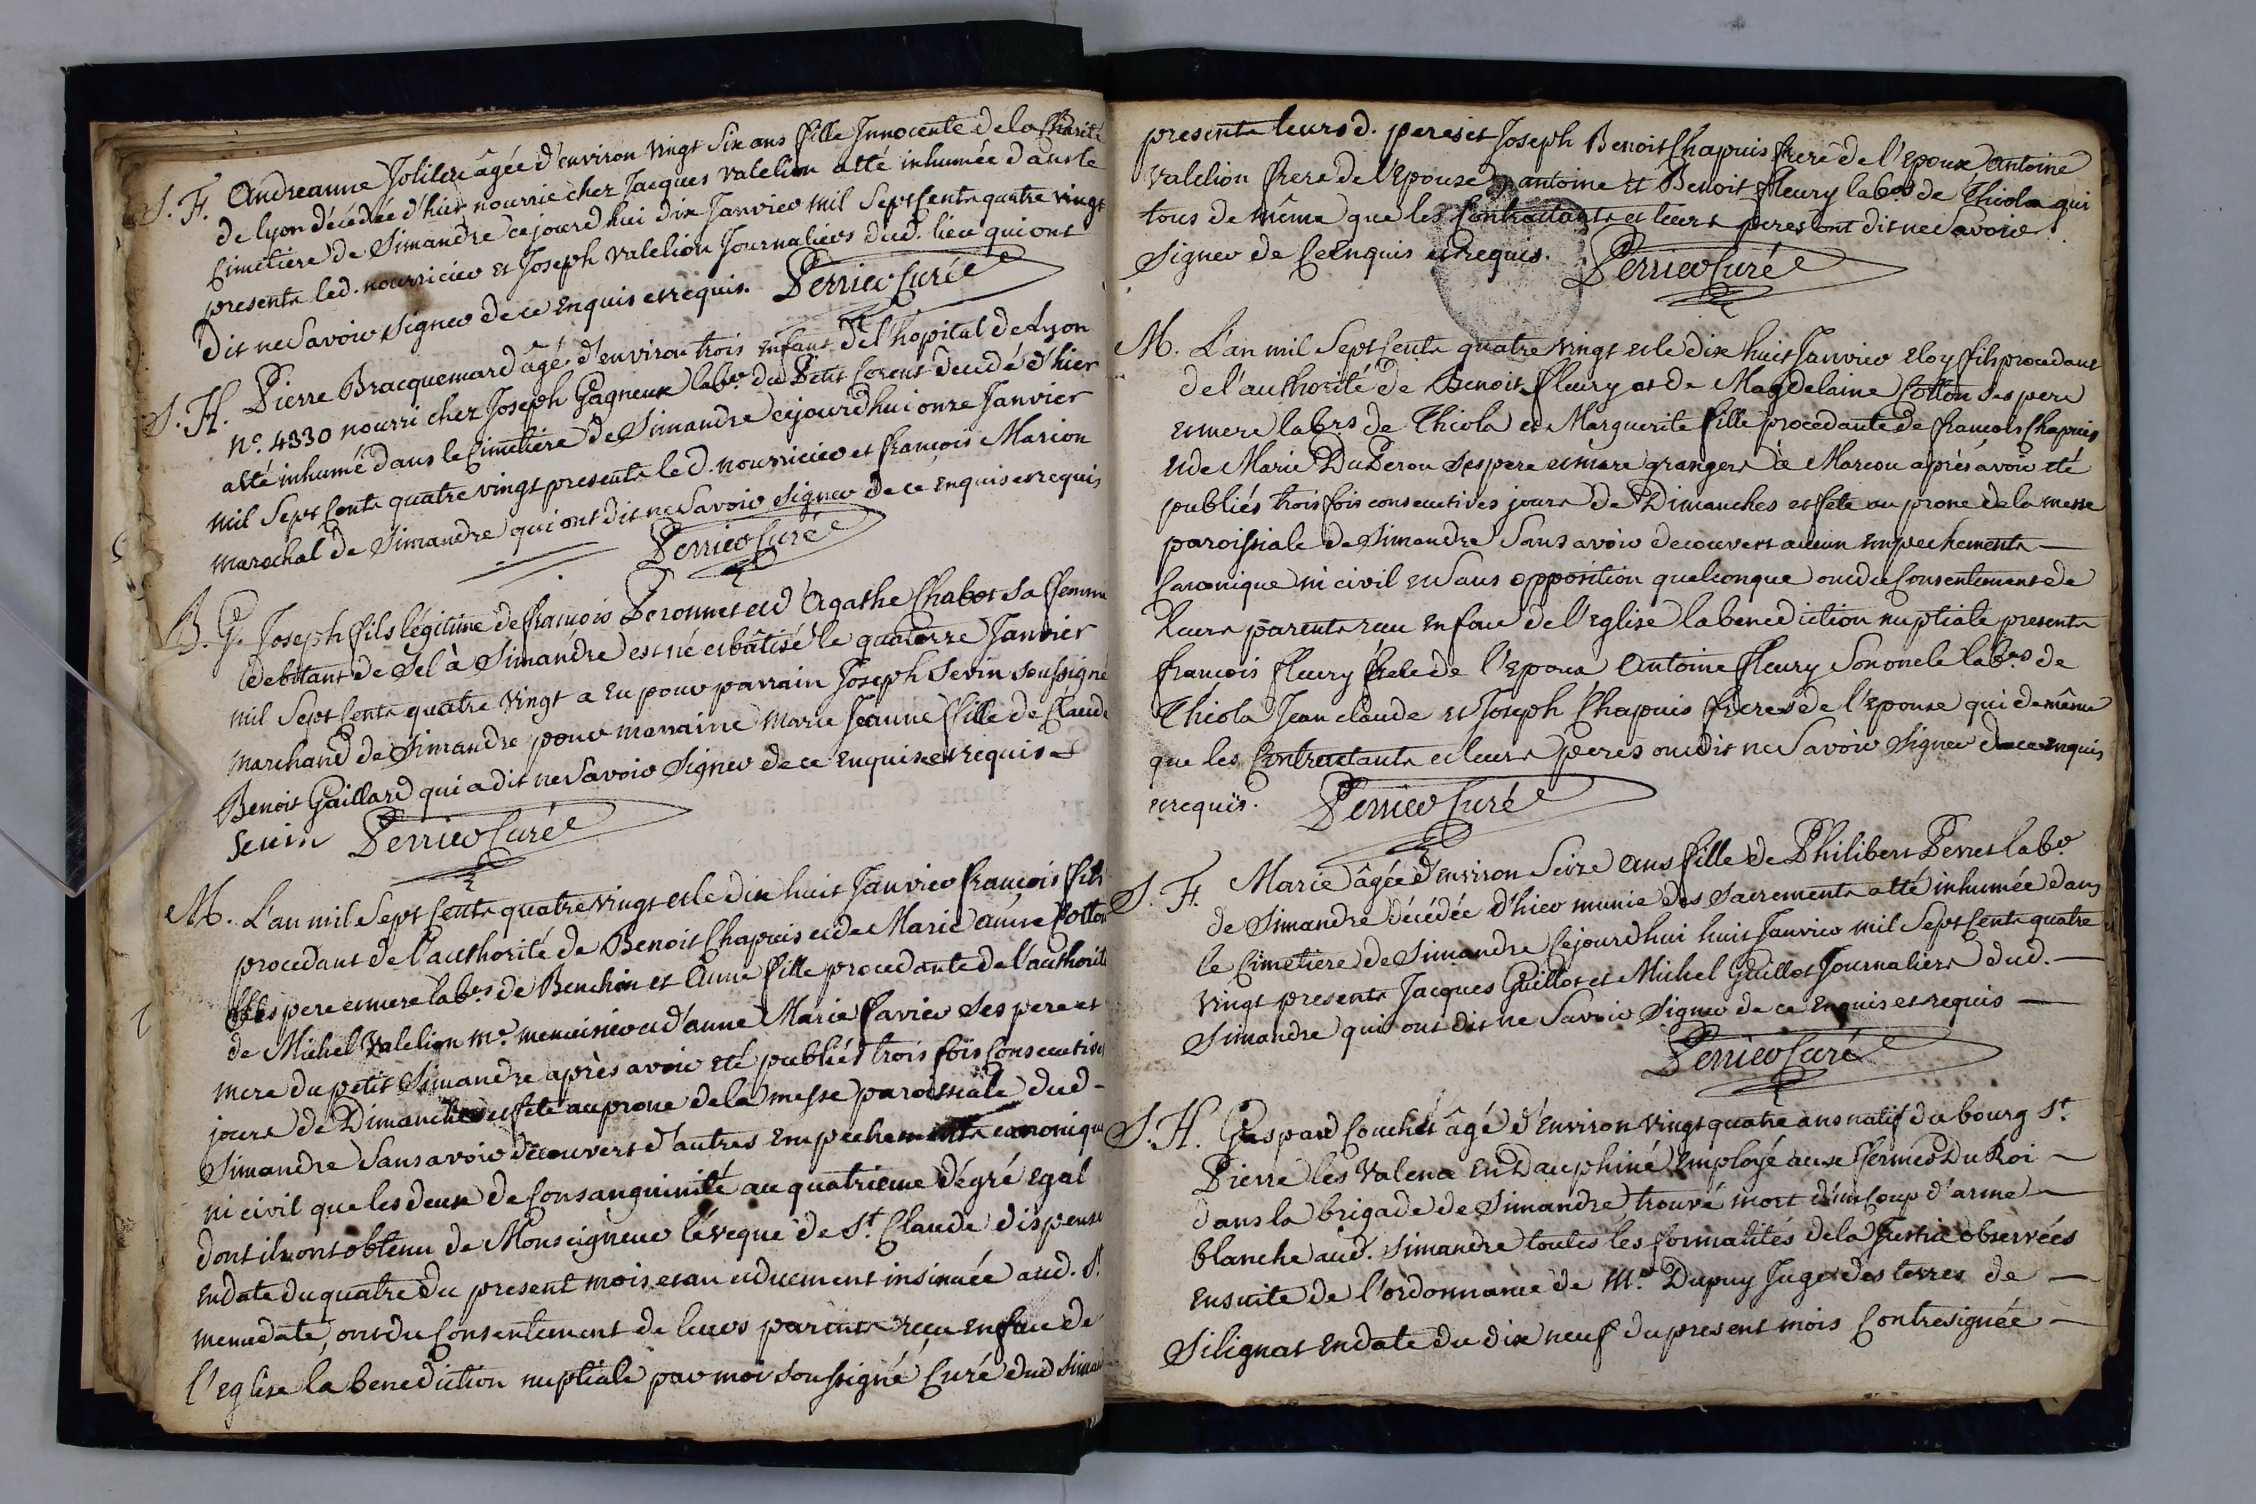 S. F. Andreanne Joliler âgée d'environ vingt six ans fille Innocente de la Charité
de Lyon décédée d'hier nourrie chez Jacques Valelion a été inhumée dans le
Cimetiere de Simandre cejourd'hui dix Janvier mil Sept Cents quatre vingt
presents led. nourricier et Joseph Valelion Journaliers dud. lieu qui ont
Dit ne Savoir Signer de ce enquis et requis. Perrier Curé
S. H. Pierre Bracquemard âgé d'environ trois enfant de l'hopital de Lyon
N°. 4330 nourri chez Joseph Gagneux labr. du Petit Corent décédé d'hier
a été inhumé dans le Cimetière de Simandre cejourd'hui onze Janvier
mil Sept Cents quatre vingt presents led. nourricier et françois Marion
marechal de Simandre qui ont dit ne Savoir Signer de ce enquis et requis
Perrier Curé
B. G. Joseph fils légitime de françois Peronnet et d'Agathe Chabot sa femme
debitant de Sel à Simandre est né et bâtisé le quatorze Janvier
mil Sept Cents quatre vingt a eu pour parrain Joseph Sevin soussigné
marchand de Simandre pour marraine Marie Jeanne fille de Claude
Benoit Gaillard qui a dit ne Savoir Signer de ce enquise et requise
Sevin Perrier Curé
M. L'an mil Sept Cents quatre vingt et le dix huit Janvier françois fils
procedant de l'authorité de Benoit Chapuis et de Marie anne Cotton
ses pere et mere labrs. de Benchin et Anne fille procedante de l'authorité
de Michel Valelion me. menuisier et d'anne Marie favier ses pere et
mere du petit Simandre après avoir eté publiés trois fois Consecutives
jours de Dimanches et fete au prone de la messe paroissiale dud -
Simandre Sans avoir découvert d'autres empechements canonique
ni civil que les deux de Consanguinité au quatrieme dégré egal
dont ils ont obtenu de Monseigneur lévêque de St. Claude dispense
en date du quatre du present mois et an et duement insinuée aud. St.
meme date, ont du Consentement de leurs parents reçu en face de
l'eglise la benediction nuptiale par moi soussigné Curé dud Simandre
presents leursd. peres et Joseph Benoit Chapuis frere de l'epoux Antoine
Valelion frere de l'épouse antoine et Benoit fleury labrs de Thiola qui
tous de même que les Contractants et leurs peres ont dit ne Savoir
Signer de Ce enquis et requis. Perrier Curé
M. L'an mil Sept Cents quatre vingt et le dix huit Janvier Eloy fils procedant
de l'authorité de Benoit fleury et de Magdelaine Cotton ses pere
et mere labrs de Thiola et Marguerite fille procedante de francois Chapuis
et de Marie DuPerou ses pere et mere grangers à Marcou après avoir eté
publiés trois fois consecutives jours de Dimanches et fete au prone de la messe
paroissiale de Simandre Sans avoir découvert aucun empechements —
Canonique ni civil et Sans opposition quelconque ont du Consentement de
Leurs parents reçu en face de l'eglise la benediction nuptiale presents
françois fleury frere de l'epoux Antoine fleury Son oncle labrs de
Thiola Jean claude et Joseph Chapuis freres de l'epouse qui de même
que les Contractants et leurs peres ont dit ne Savoir Signer de ce enquis
et requis. Perrier Curé
S. F. Marie âgée d'environ Seize ans fille de Philibert Perret labr.
de Simandre décédée d'hier munie des Sacrements a été inhumée dans
le Cimetiere de Simandre Cejourd'hui huit Janvier mil Sept Cents quatre
vingt presents Jacques Guillot et Michel Guillot Journaliers dud. —
Simandre qui ont dit ne Savoir Signer de ce enquis et requis —
Perrier Curé
S. H. Gaspard Couchet âgé d'Environ vingt quatre ans natif du bourg St.
Pierre lès Valence en Dauphiné employé aux fermes Du Roi —
dans la brigade de Simandre trouvé mort d'un Coup d'arme —
blanche aud. Simandre toutes les formalités de la Justice observées
ensuite de l'ordonnance de Mr. Dupuy Juge des terres de —
Silignat en date du dix neuf du present mois Contresignée —